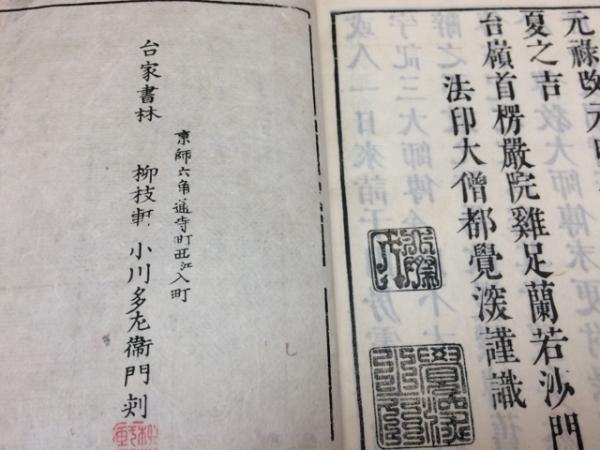 元祿改元
夏之吉
台嶺首楞嚴院雞足蘭若沙門
法印大僧都覺㴱謹識
京師六角通寺町西江入町
台家書林 柳枝軒 小川多左衞門刻